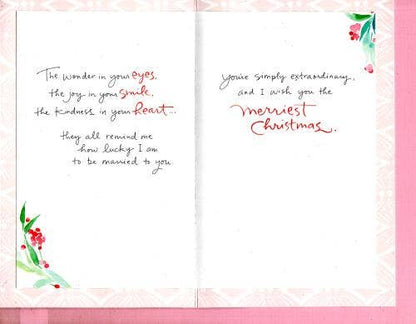 The wonder in your eyes,
the joy in your smile,
the kindness in your heart...
they all remind me
how lucky I am
to be married to you.
You're simply extraordinary,
and I wish you the
merriest
Christmas.